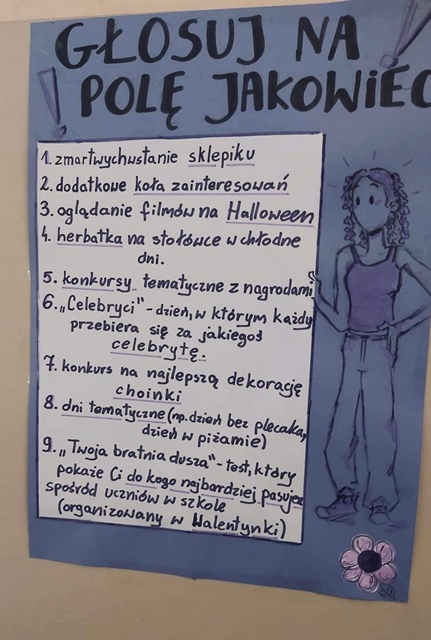 GŁOSUJ NA
! POLĘ JAKOWIEC !
1. zmartwychwstanie sklepiku
2. dodatkowe koła zainteresowań
3. oglądanie filmów na Halloween
4. herbatka na stołówce w chłodne
dni.
5. konkursy tematyczne z nagrodami
6. „Celebryci" - dzień, w którym każdy
przebiera się za jakiegoś
celebrytę.
7. konkurs na najlepszą dekorację
choinki
8. dni tematyczne (np. dzień bez plecaka,
dzień w piżamie)
9. „Twoja bratnia dusza" - test, który
pokaże Ci do kogo najbardziej pasujesz
spośród uczniów w szkole
(organizowany w Walentynki)